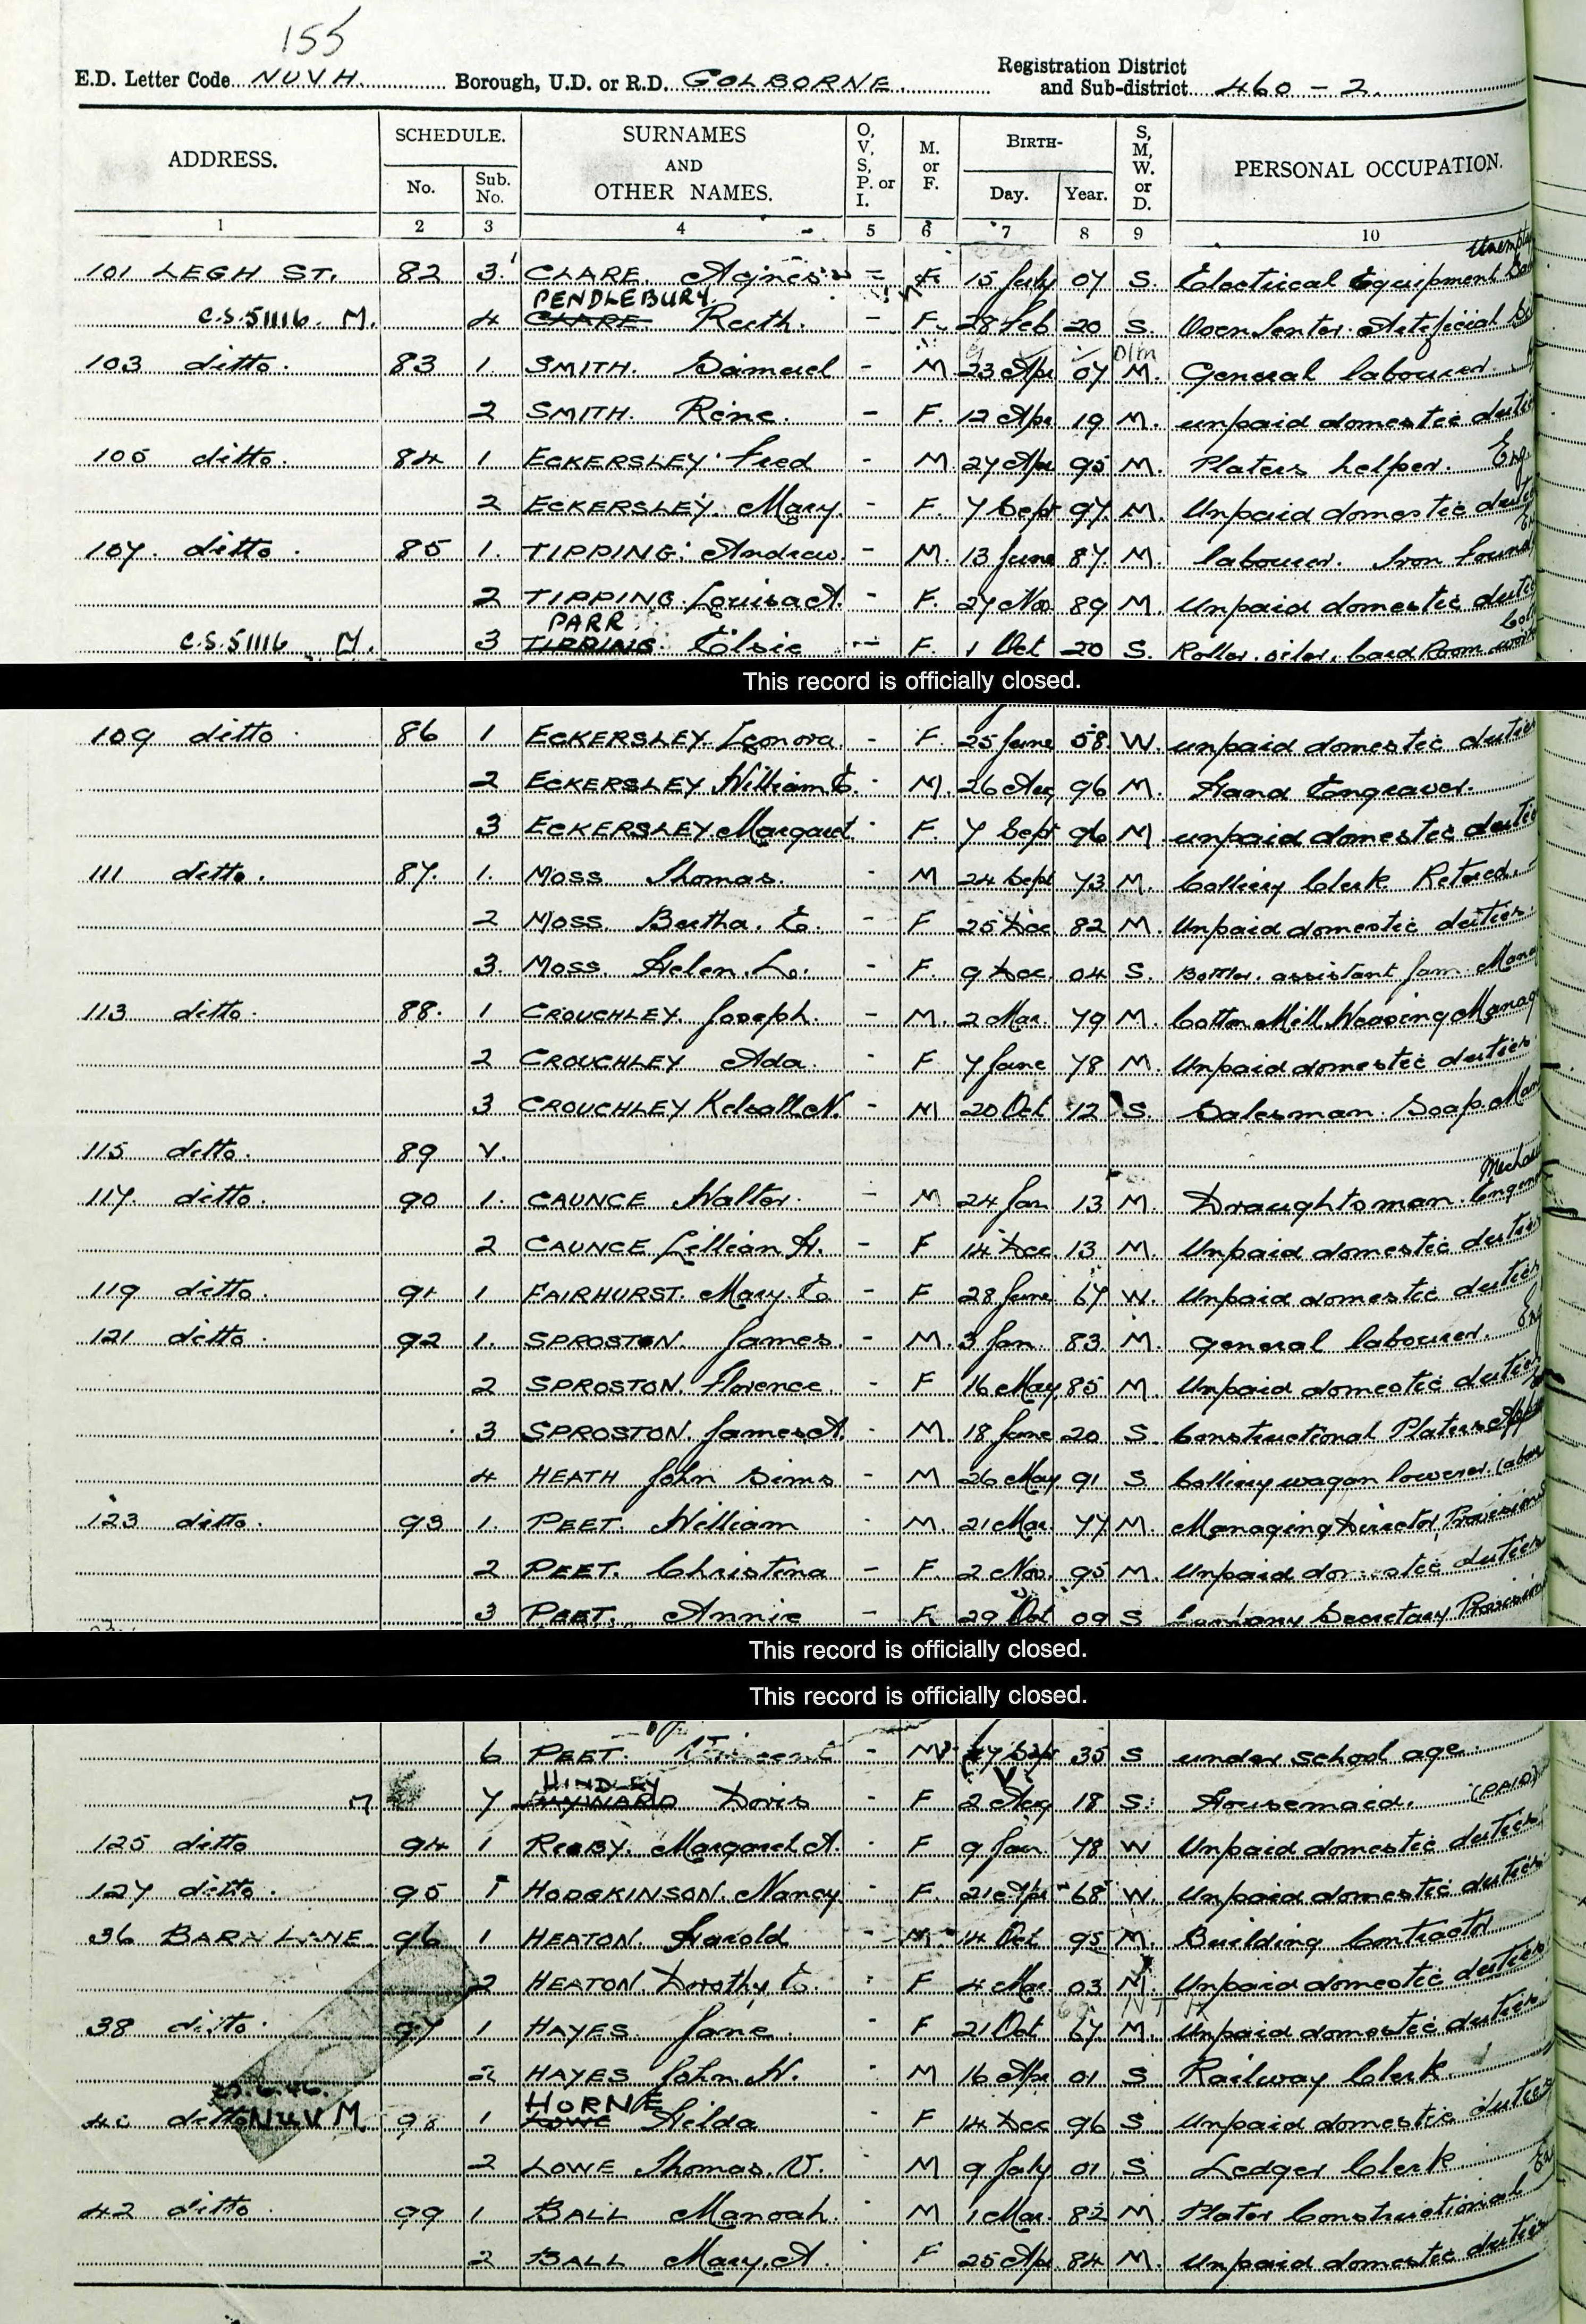 155
E.D. Letter Code NUVH. Borough, U.D. or R.D. GOLBORNE. Registration District and Sub-district 460 - 2.
ADDRESS. SCHEDULE. No. Sub. No. SURNAMES AND OTHER NAMES. O, V, S, P. or I. M. or F. BIRTH- Day. Year. S, M, W. or D. PERSONAL OCCUPATION.
1 2 3 4 5 6 7 8 9 10
101 LEGH ST. 82 3. CLARE. Agnes - F. 15 July 07 S. Electrical Equipment
PENDLEBURY.
C.S.51116. M. 4 CLARE Ruth. - F. 28 Feb 20 S.
103 ditto. 83 1. SMITH. Samuel - M 23 Apr 07 M. General labourer.
2 SMITH. Rene. - F. 12 Apr 19 M. unpaid domestic duties
105 ditto. 84 1 ECKERSLEY Fred - M 27 Apr 95 M. Platers helper. Eng.
2 ECKERSLEY. Mary. - F. 7 Sept 97 M. Unpaid domestic duties
107. ditto. 85 1. TIPPING. Andrew. - M. 13 June 87. M. labourer. Iron Found
2 TIPPING. Louisa A. - F. 27 Nov 89 M. Unpaid domestic duties
PARR
C.S.51116 M. 3 TIPPING. Elsie - F. 1 Oct 20 S. Roller oiler, Card Room
This record is officially closed.
109 ditto 86 1 ECKERSLEY. Leonora. - F. 25 June 58. W. unpaid domestic duties
2 ECKERSLEY William E. - M. 26 Aug 96 M. Hand Engraver.
3 ECKERSLEY. Margaret. - F. 7 Sept 96 M unpaid domestic duties
111 ditto. 87. 1. MOSS Thomas. - M 24 Sept 73 M. Colliery Clerk Retired.
2 MOSS. Bertha. E. - F 25 Dec 82 M. Unpaid domestic duties.
3. MOSS. Helen. L. - F. 9 Dec. 04 S. Bottler. assistant Jam Mana
113 ditto. 88. 1 CROUCHLEY. Joseph. - M. 2 Mar. 79 M. Cotton Mill Weaving Manag
2 CROUCHLEY Ada. - F 7 June 78 M. Unpaid domestic duties.
3 CROUCHLEY Kelsall N. - M 20 Oct 12 S. Salesman. Soap Man
115 ditto. 89 V.
117. ditto. 90 1. CAUNCE Walter. - M 24 Jan 13 M. Draughtsman.
2 CAUNCE Lillian H. - F 14 Dec. 13 M. Unpaid domestic duties
119 ditto. 91 1 FAIRHURST. Mary. E - F 28 June 67 W. Unpaid domestic duties
121 ditto. 92 1. SPROSTON. James. - M. 3 Jan. 83. M. General labourer. Eng
2 SPROSTON. Florence. - F 16 May 85 M. Unpaid domestic duties
3 SPROSTON. James A. - M. 18 June 20 S. Constructional Platers
4 HEATH John Sims - M 26 May 91 S Colliery wagon lowerer. (above
123 ditto. 93 1. PEET. William - M. 21 Mar. 77 M. Managing Director, Provisions
2 PEET. Christina - F. 2 Nov. 95 M. Unpaid domestic duties
3 PEET. Annie - F. 29 Oct 09 S Company Secretary Provision
This record is officially closed.
This record is officially closed.
6 PEET. Vincent - M 35 S under school age.
HINDLEY
M 7 Doris - F 2 Aug 18 S. Housemaid. (PAID)
125 ditto 94 1 Margaret A. - F 9 Jan 78 W Unpaid domestic duties
127 ditto. 95 1 HODGKINSON. Nancy - F. 21 Apr 68 W. Unpaid domestic duties
36 BARN LANE 96 1 HEATON. Harold - M. 14 Oct 95 M. Building Contractor
2 HEATON. Dorothy E. - F 4 Mar. 03 M. Unpaid domestic duties
38 ditto. 97 1 HAYES. Jane. - F 21 Oct 67 M. Unpaid domestic duties
2 HAYES John W. - M 16 Apr 01 S Railway Clerk.
HORNE
40 ditto NUV M 98 1 LOWE Hilda - F 14 Dec 96 S Unpaid domestic duties
2 LOWE Thomas. V. - M 9 July 01 S Ledger Clerk.
42 ditto 99 1 BALL Manoah. - M 1 Mar. 82 M. Plater Constructional Eng
2 BALL Mary. A. - F 25 Apr 84 M. Unpaid domestic duties